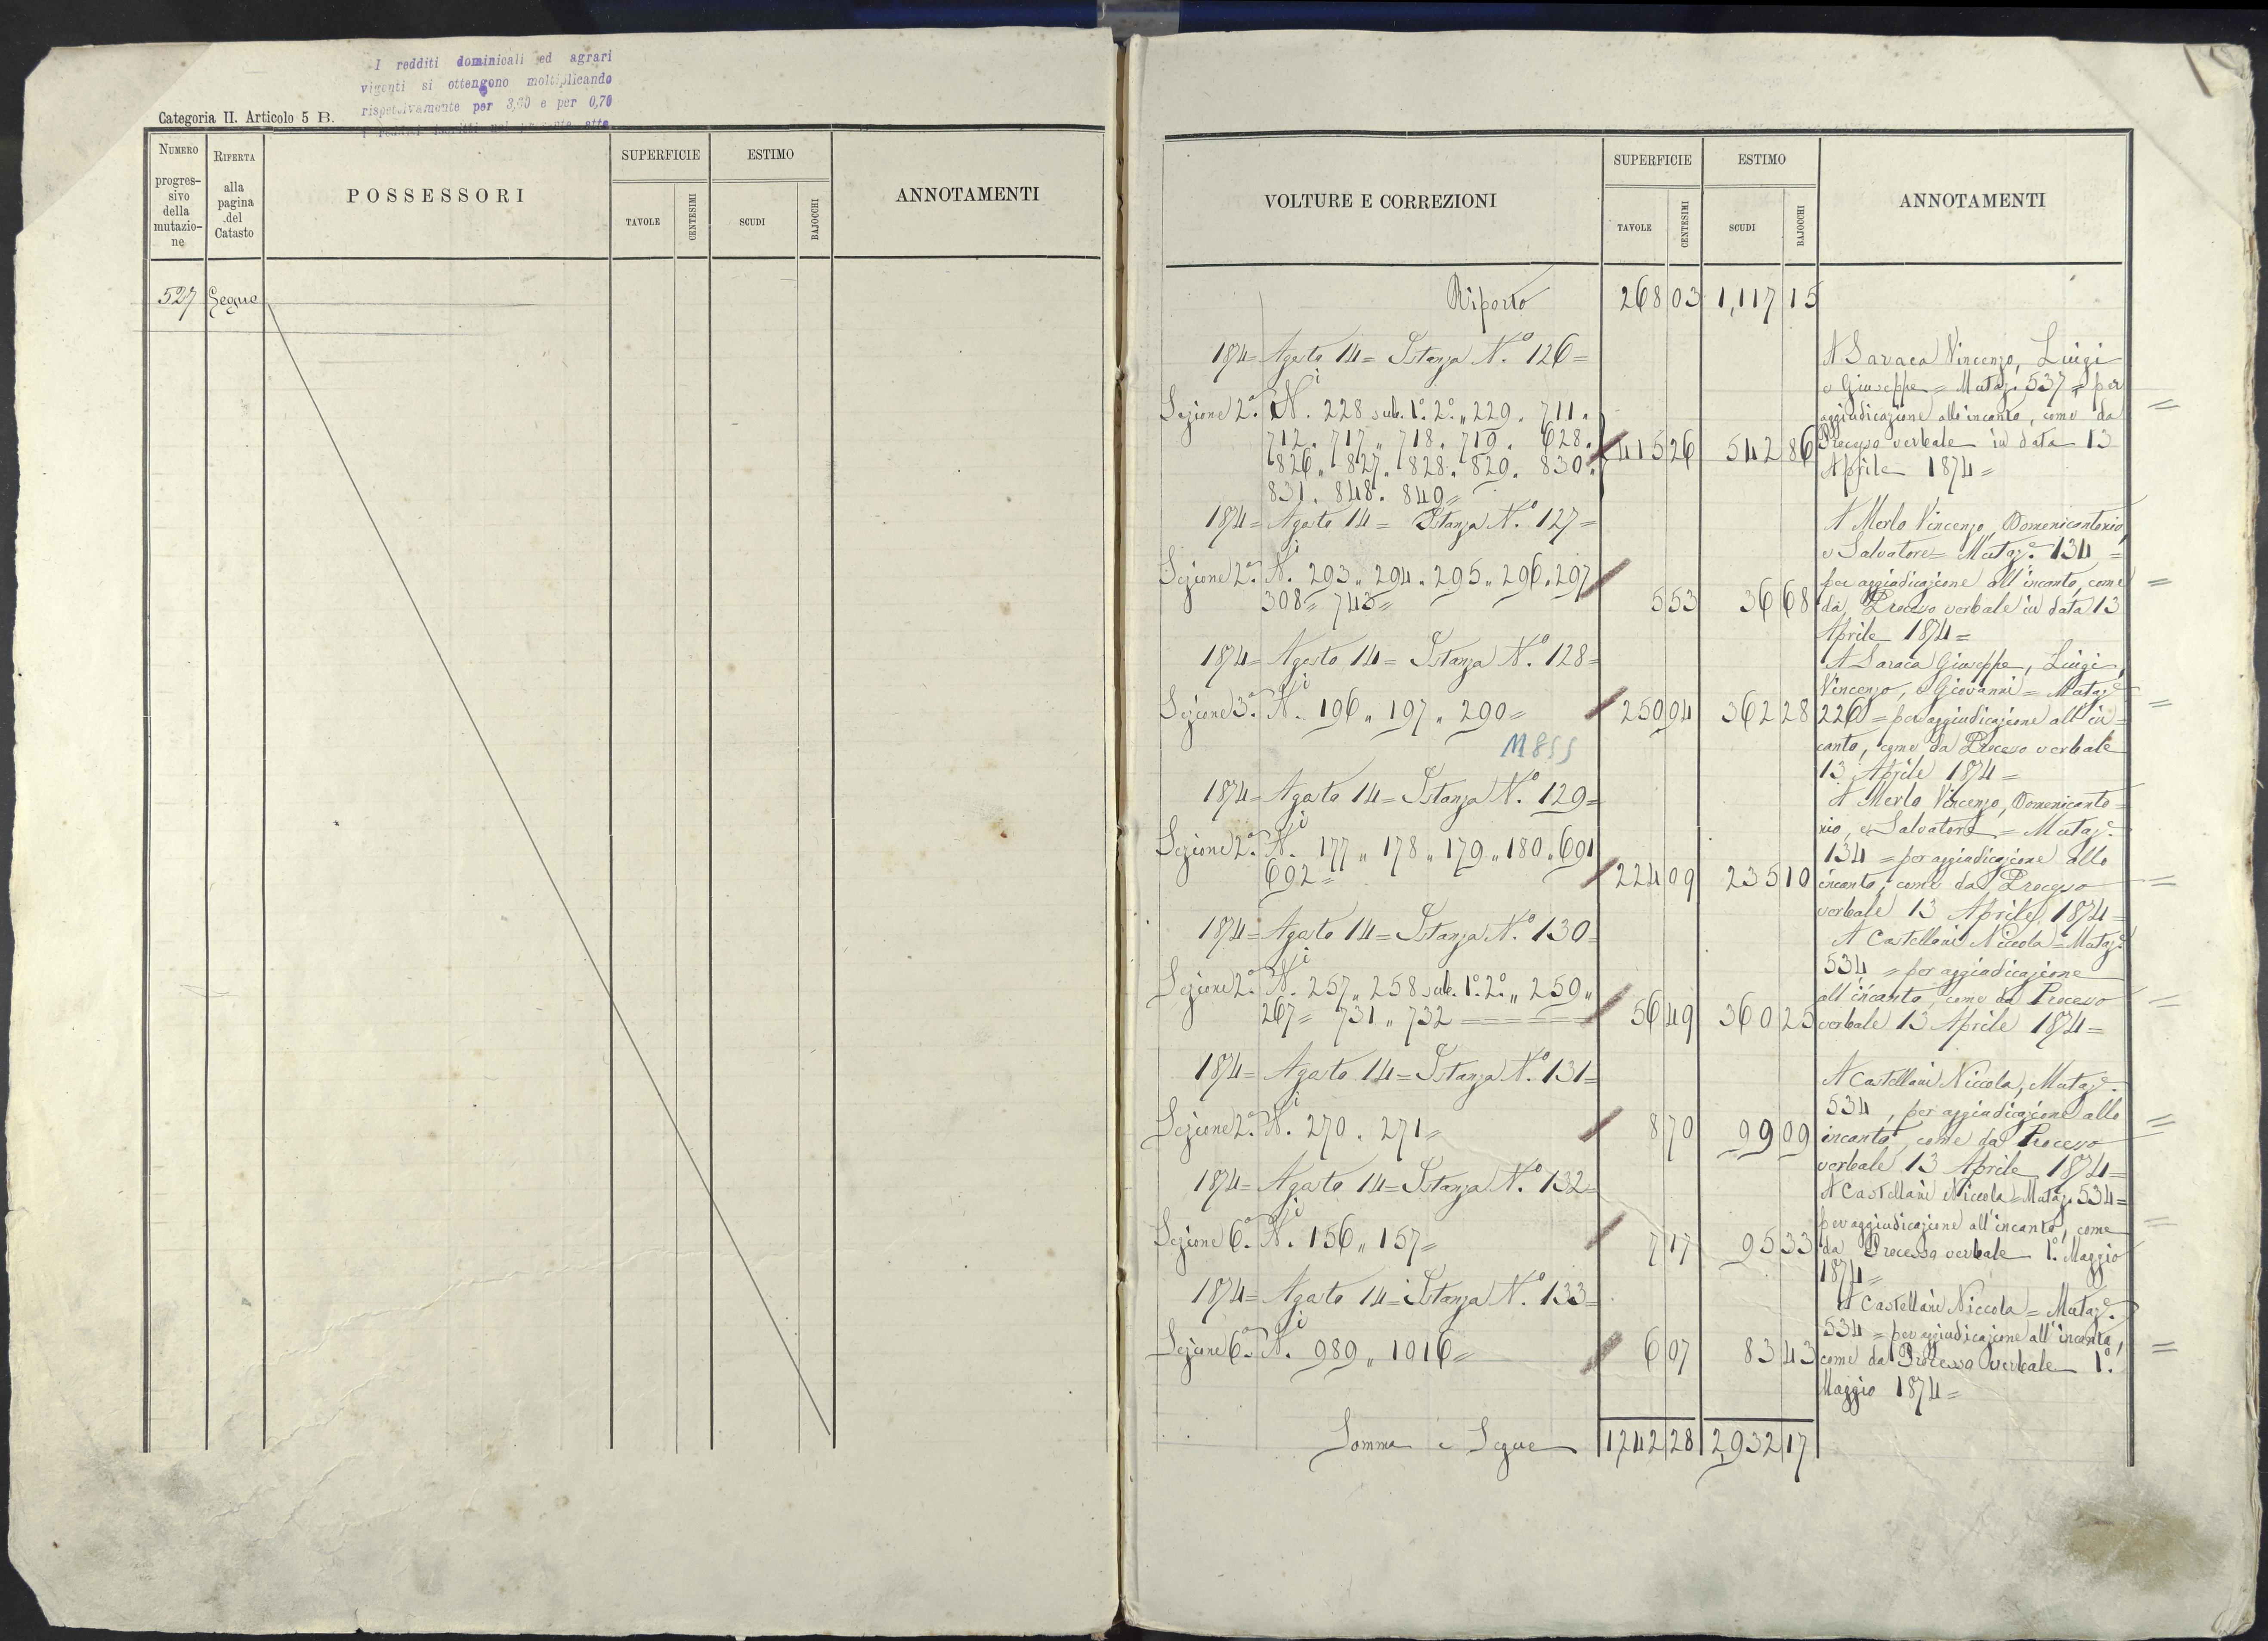 I redditi dominicali ed agrari
vigenti si ottengono moltiplicando
rispettivamente per 3,60 e per 0,70
Categoria II. Articolo 5 B.
NUMERO
progres-
sivo
della
mutazio-
ne
RIFERTA
alla
pagina
del
Catasto
POSSESSORI
SUPERFICIE
TAVOLE
CENTESIMI
ESTIMO
SCUDI
BAJOCCHI
ANNOTAMENTI
527 Segue
VOLTURE E CORREZIONI
SUPERFICIE
TAVOLE
CENTESIMI
ESTIMO
SCUDI
BAJOCCHI
ANNOTAMENTI
Riporto 268 03 1,117 15
1874= Agosto 14= Istanza N.o 126=
Sezione 2a. Ni. 228 sub. 1o. 2o. „ 229. 711.
712. 717 „ 718. 719. 628.
826 „ 827. 828. 829. 830.
831. 848. 849=
415 26 542 86
A Saraca Vincenzo, Luigi
e Giuseppe = Mutaz. 537 = per
aggiudicazione allo incanto, come da
Processo verbale in data 13
Aprile 1874=
1874= Agosto 14= Istanza N.o 127=
Sezione 2a. Ni. 293 „ 294. 295 „ 296. 297
308= 743=
5 53 36 68
A Merlo Vincenzo, Domenicantonio,
e Salvatore= Mutaze. 134=
per aggiudicazione all'incanto, come
da Processo verbale in data 13
Aprile 1874=
1874= Agosto 14= Istanza N.o 128=
Sezione 3a. Ni. 196 „ 197 „ 290=
250 94 362 28
M855
A Saraca Giuseppe, Luigi,
Vincenzo, e Giovanni= Mutaze
226= per aggiudicazione all'in=
canto, come da Processo verbale
13 Aprile 1874=
1874= Agosto 14= Istanza N.o 129=
Sezione 2a. Ni. 177 „ 178 „ 179 „ 180 „ 691
692=
224 09 235 10
A Merlo Vincenzo, Domenicanto=
nio, e Salvatore= Mutaze.
134= per aggiudicazione allo
incanto, come da Processo
verbale 13 Aprile 1874=
1874= Agosto 14= Istanza N.o 130=
Sezione 2a. Ni. 257 „ 258 sub. 1o. 2o. „ 259 „
267= 731 „ 732
56 49 360 25
A Castellani Niccola= Mutaze
534= per aggiudicazione
all'incanto, come da Processo
verbale 13 Aprile 1874=
1874= Agosto 14= Istanza N.o 131=
Sezione 2a. Ni. 270. 271=
8 70 99 09
A Castellani Niccola, Mutaze.
534, per aggiudicazione allo
incanto, come da Processo
verbale 13 Aprile 1874=
1874= Agosto 14= Istanza N.o 132=
Sezione 6a. Ni. 156 „ 157=
7 17 95 33
A Castellani Niccola= Mutaz. 534=
per aggiudicazione all'incanto, come
da Processo verbale 1o. Maggio
1874=
1874= Agosto 14= Istanza N.o 133=
Sezione 6a. Ni. 989 „ 1016=
6 07 83 43
A Castellani Niccola= Mutaze.
534= per aggiudicazione all'incanto,
come da Processo verbale 1o.
Maggio 1874=
Somma e Segue 1242 28 2,932 17